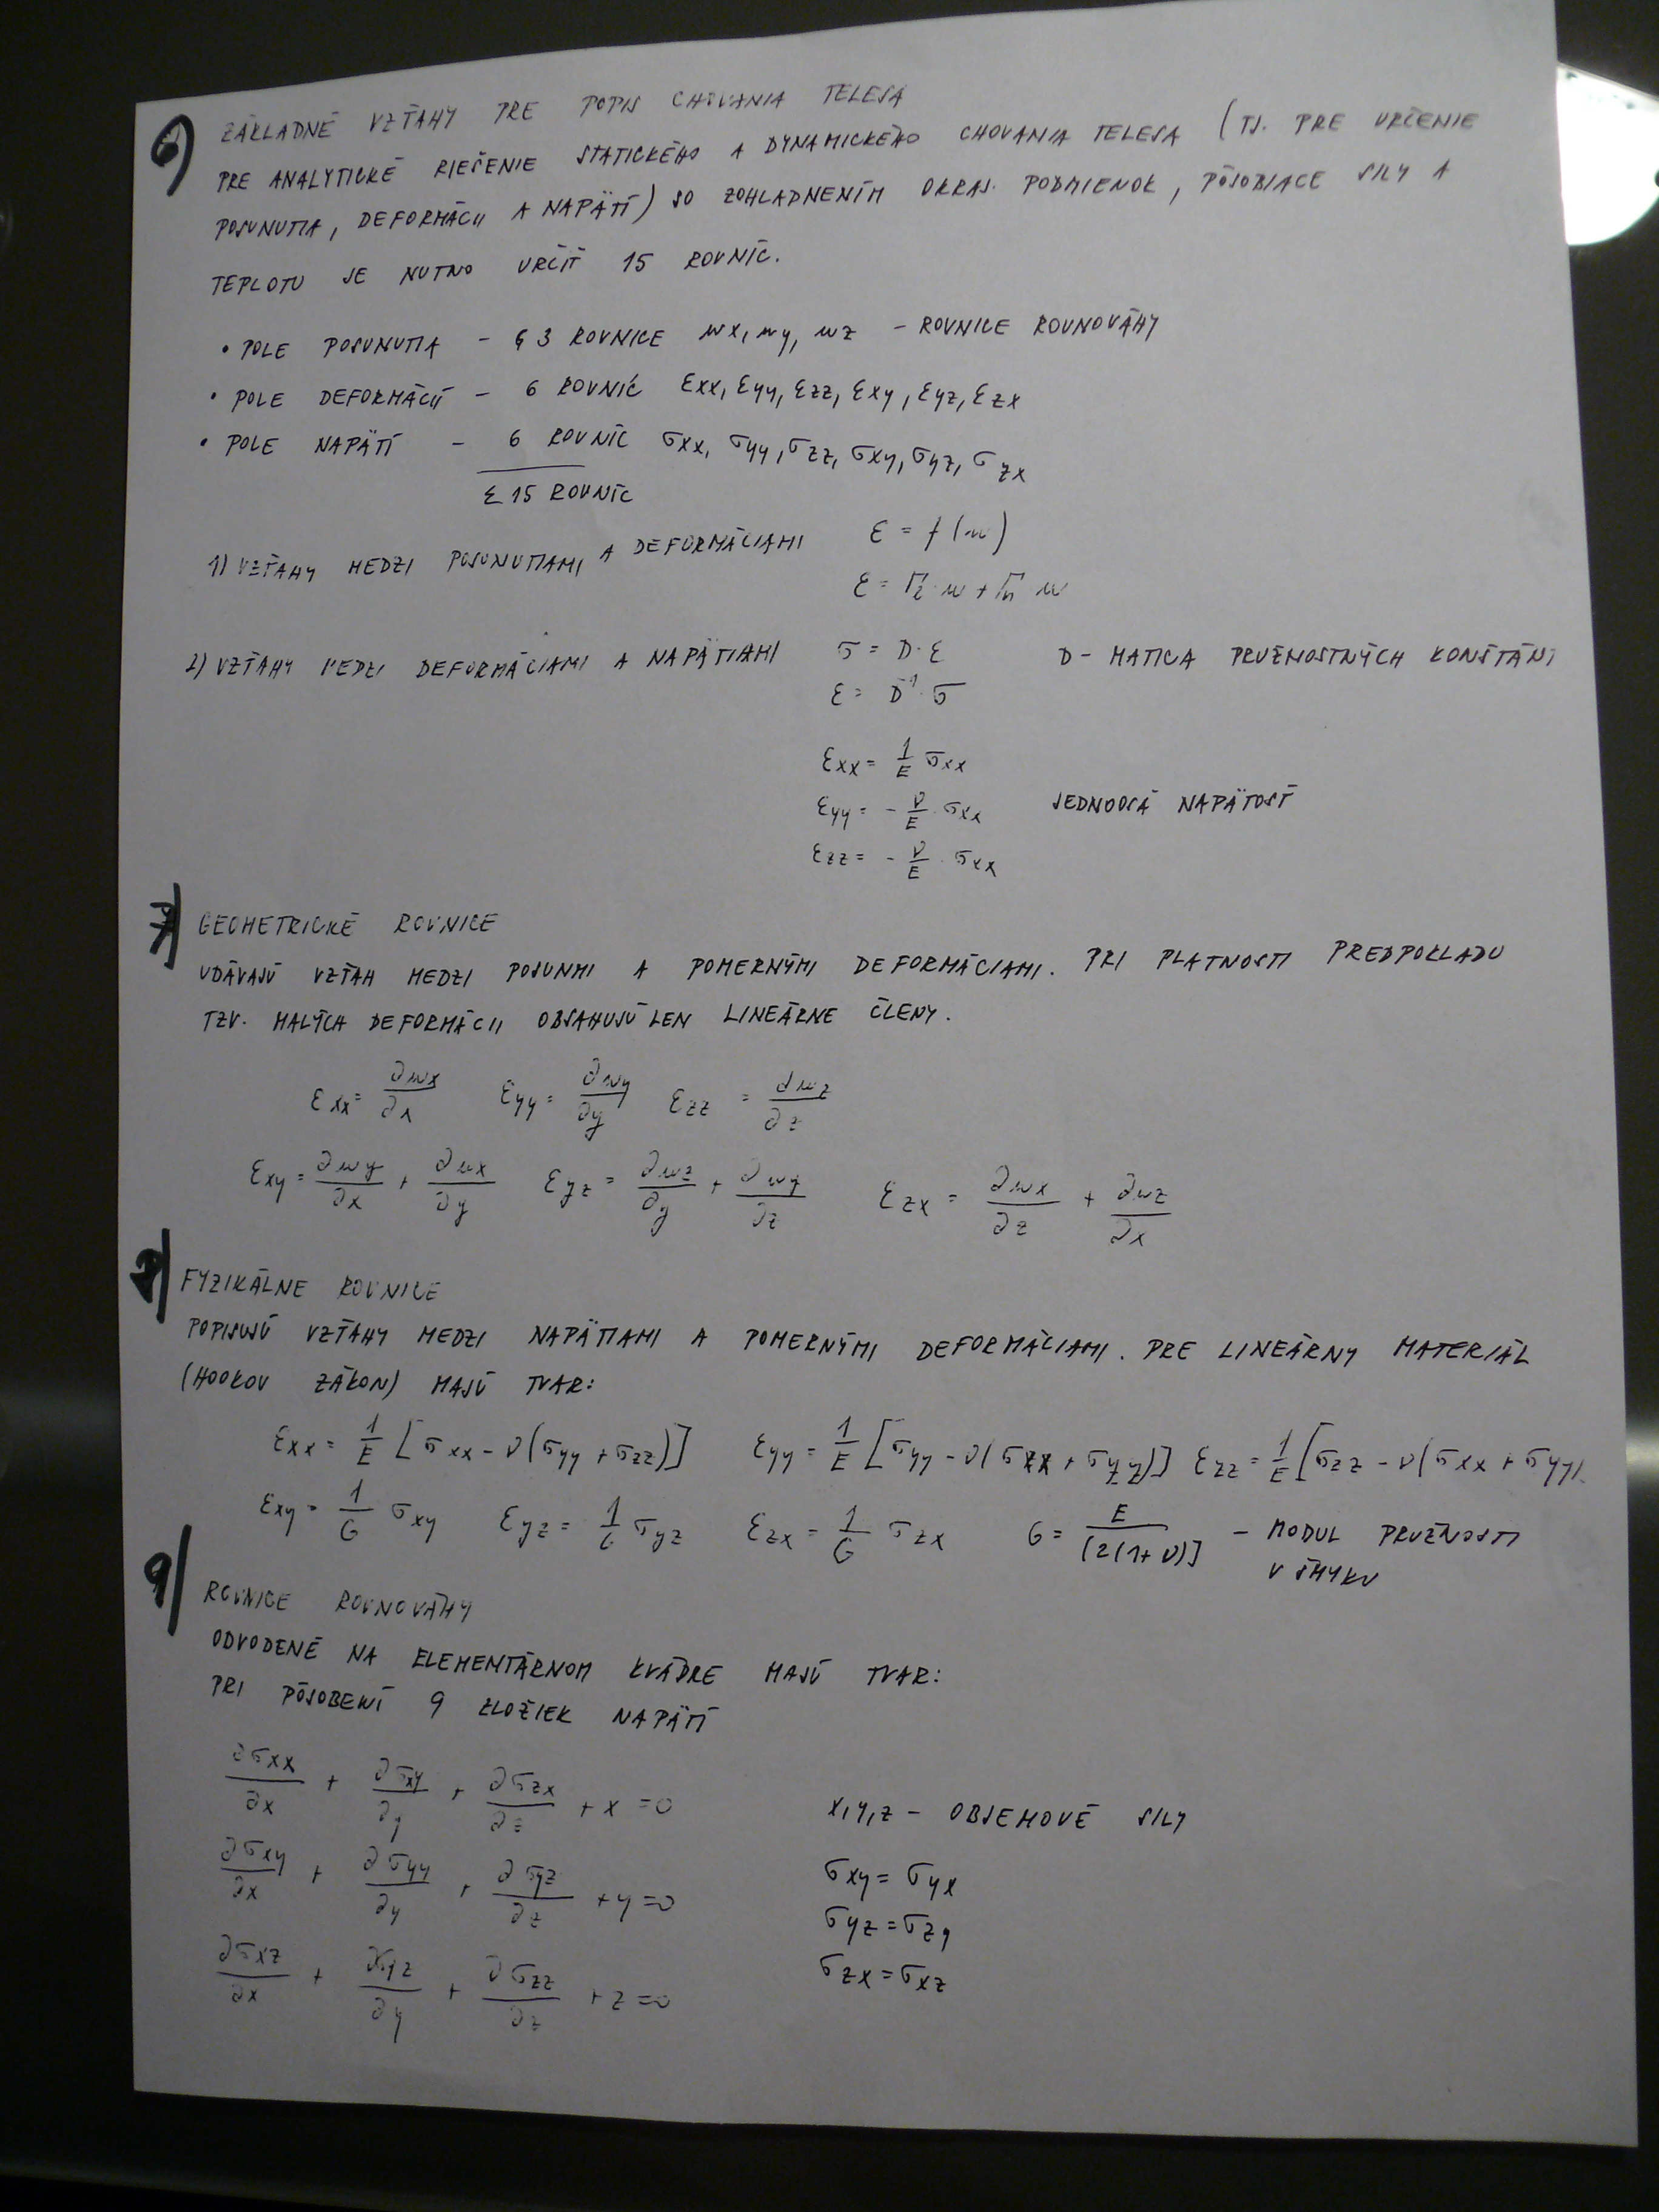 6) ZÁKLADNÉ VZŤAHY PRE POPIS CHOVANIA TELESA
PRE ANALYTICKÉ RIEŠENIE STATICKÉHO A DYNAMICKÉHO CHOVANIA TELESA (TJ. PRE URČENIE
POSUNUTIA, DEFORMÁCII A NAPÄTÍ) SO ZOHLADNENÍM OKRAJ. PODMIENOK, PÔSOBIACE SILY A
TEPLOTU JE NUTNO URČIŤ 15 ROVNÍC.
• POLE POSUNUTIA - 3 ROVNICE ux, uy, uz - ROVNICE ROVNOVÁHY
• POLE DEFORMÁCIÍ - 6 ROVNÍC εxx, εyy, εzz, εxy, εyz, εzx
• POLE NAPÄTÍ - 6 ROVNÍC σxx, σyy, σzz, σxy, σyz, σzx
Σ 15 ROVNÍC
1) VZŤAHY MEDZI POSUNUTIAMI A DEFORMÁCIAMI ε = f(u)
ε = Γl·u + Γn u
2) VZŤAHY MEDZI DEFORMÁCIAMI A NAPÄTIAMI σ = D·ε D - MATICA PRUŽNOSTNÝCH KONŠTÁNT
ε = D⁻¹·σ
εxx = 1/E σxx
εyy = -ν/E·σxx JEDNOOSÁ NAPÄTOSŤ
εzz = -ν/E·σxx
7) GEOMETRICKÉ ROVNICE
UDÁVAJÚ VZŤAH MEDZI POSUNMI A POMERNÝMI DEFORMÁCIAMI. PRI PLATNOSTI PREDPOKLADU
TZV. MALÝCH DEFORMÁCII OBSAHUJÚ LEN LINEÁRNE ČLENY.
εxx = ∂ux/∂x εyy = ∂uy/∂y εzz = ∂uz/∂z
εxy = ∂uy/∂x + ∂ux/∂y εyz = ∂uz/∂y + ∂uy/∂z εzx = ∂ux/∂z + ∂uz/∂x
8) FYZIKÁLNE ROVNICE
POPISUJÚ VZŤAHY MEDZI NAPÄTIAMI A POMERNÝMI DEFORMÁCIAMI. PRE LINEÁRNY MATERIÁL
(HOOKOV ZÁKON) MAJÚ TVAR:
εxx = 1/E [σxx - ν(σyy + σzz)] εyy = 1/E [σyy - ν(σxx + σzz)] εzz = 1/E [σzz - ν(σxx + σyy)
εxy = 1/G σxy εyz = 1/G σyz εzx = 1/G σzx G = E/[2(1+ν)] - MODUL PRUŽNOSTI
V ŠMYKU
9) ROVNICE ROVNOVÁHY
ODVODENÉ NA ELEMENTÁRNOM KVÁDRE MAJÚ TVAR:
PRI PÔSOBENÍ 9 ZLOŽIEK NAPÄTÍ
∂σxx/∂x + ∂σxy/∂y + ∂σzx/∂z + x = 0 x,y,z - OBJEMOVÉ SILY
∂σxy/∂x + ∂σyy/∂y + ∂σyz/∂z + y = 0 σxy = σyx
σyz = σzy
∂σxz/∂x + ∂σyz/∂y + ∂σzz/∂z + z = 0 σzx = σxz